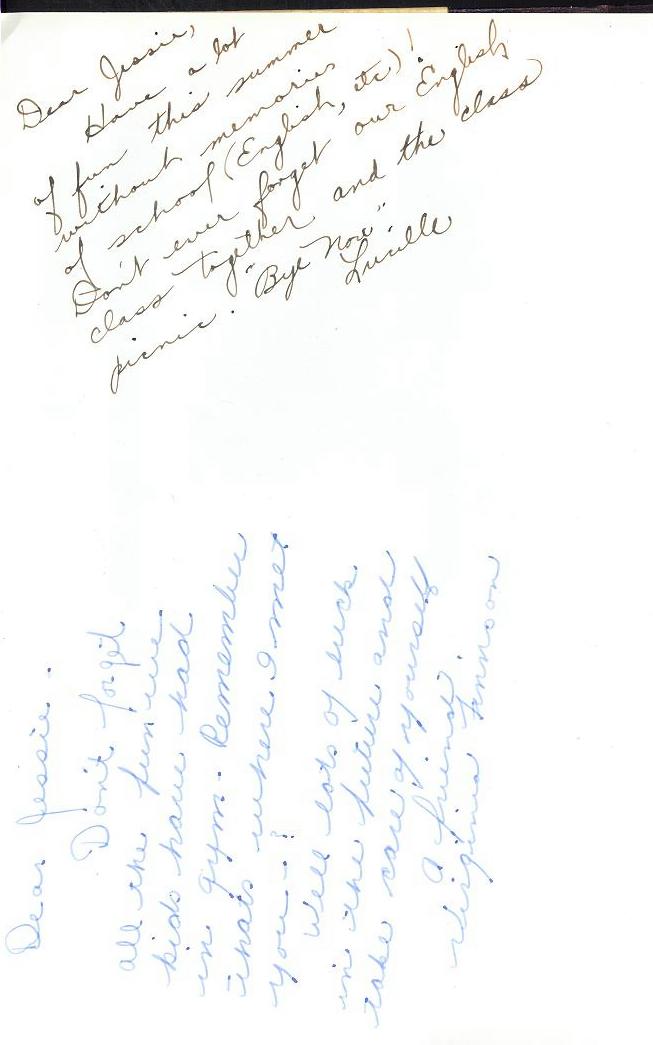 Dear Jessie,
Have a lot
of fun this summer
without memories
of school (English, etc)!
Don't ever forget our English
class together and the class
picnic. "Bye Now"
Lucille
Dear Jessie.
Don't forget
all the fun we
kids have had
in gym. Remember
thats where I met
you--!
Well lots of luck
in the future and
take care of yourself
a friend.
Virginia